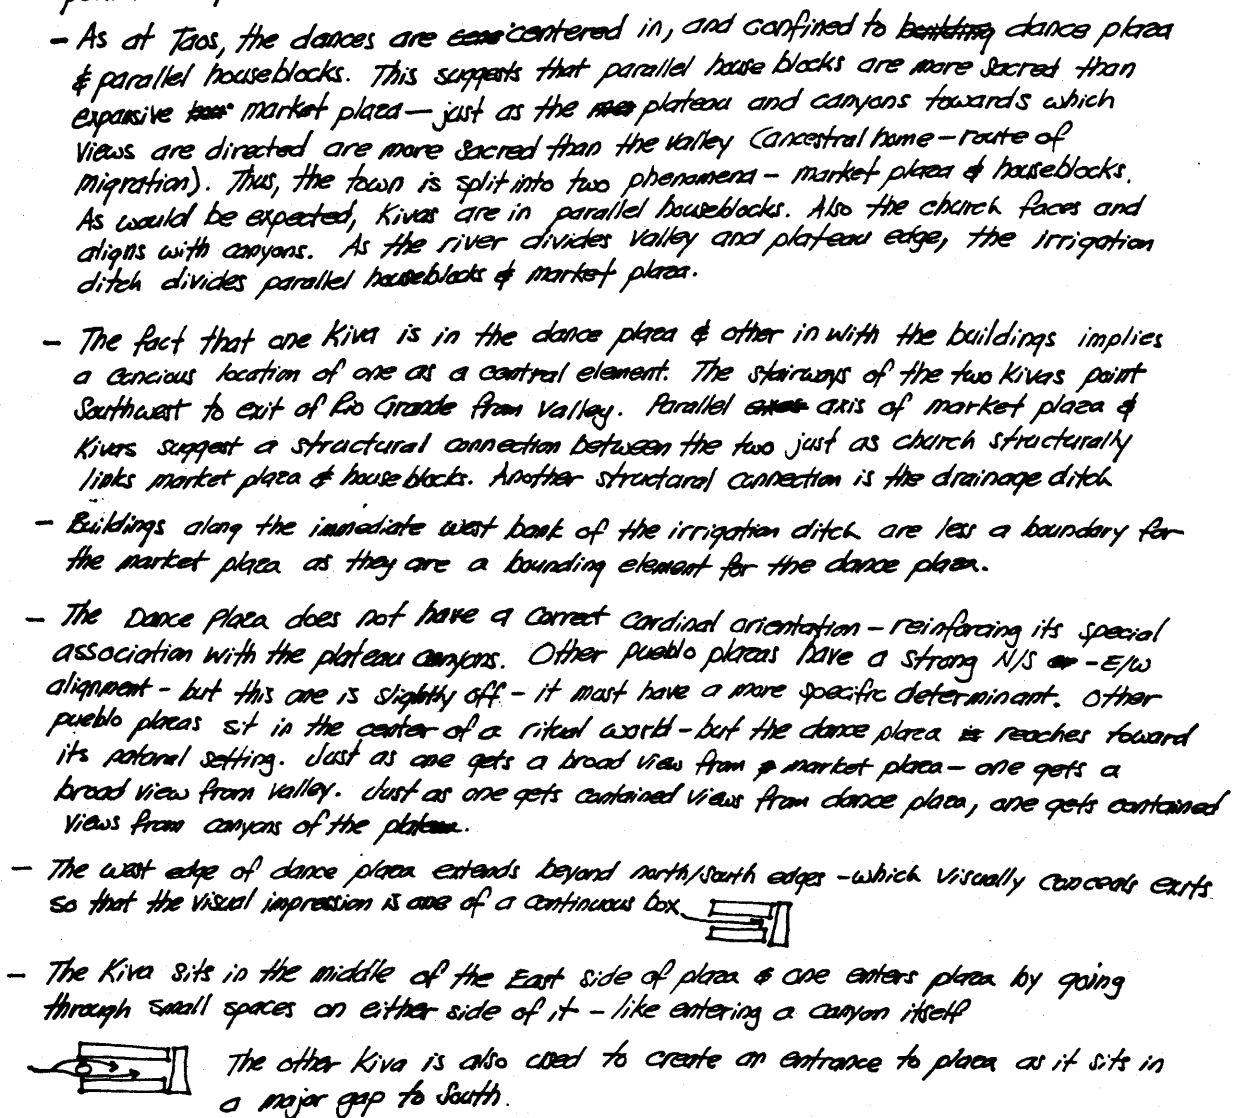 - As at Taos, the dances are centered in, and confined to building dance plaza
& parallel houseblocks. This suggests that parallel house blocks are more sacred than
expansive market plaza - just as the plateau and canyons towards which
views are directed are more sacred than the valley (ancestral home - route of
migration). Thus, the town is split into two phenomena - market plaza & houseblocks.
As would be expected, Kivas are in parallel houseblocks. Also the church faces and
aligns with canyons. As the river divides valley and plateau edge, the irrigation
ditch divides parallel houseblocks & market plaza.
- The fact that one Kiva is in the dance plaza & other in with the buildings implies
a concious location of one as a central element. The stairways of the two Kivas point
Southwest to exit of Rio Grande from valley. Parallel axis of market plaza &
Kivas suggest a structural connection between the two just as church structurally
links market plaza & houseblocks. Another structural connection is the drainage ditch
- Buildings along the immediate west bank of the irrigation ditch are less a boundary for
the market plaza as they are a bounding element for the dance plaza.
- The Dance Plaza does not have a correct cardinal orientation - reinforcing its special
association with the plateau canyons. Other pueblo plazas have a strong N/S - E/W
alignment - but this one is slightly off - it must have a more specific determinant. Other
pueblo plazas sit in the center of a ritual world - but the dance plaza is reaches toward
its natural setting. Just as one gets a broad view from market plaza - one gets a
broad view from valley. Just as one gets contained views from dance plaza, one gets contained
views from canyons of the plateau.
- The west edge of dance plaza extends beyond north/south edges - which visually conceals exits
so that the visual impression is one of a continuous box
- The Kiva sits in the middle of the East side of plaza & one enters plaza by going
through small spaces on either side of it - like entering a canyon itself
The other Kiva is also used to create an entrance to plaza as it sits in
a major gap to South.